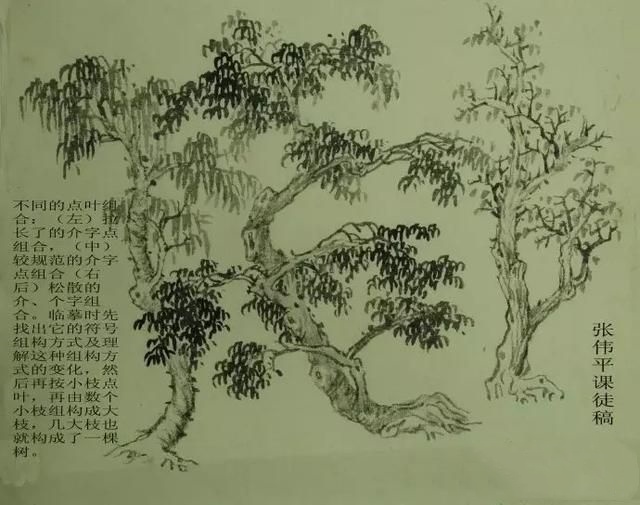 不同的点叶组
合：（左）拉
长了的介字点
组合，（中）
较规范的介字
点组合（右
后）松散的
介、个字组
合。临摹时先
找出它的符号
组构方式及理
解这种组构方
式的变化，然
后再按小枝点
叶，再由数个
小枝组构成大
枝，几大枝也
就构成了一棵
树。
张伟平课徒稿